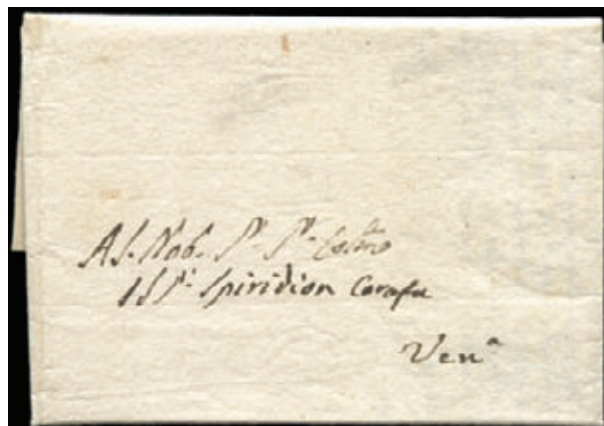 Al. Nob. Sr. Sr.
Il Sr. Spiridion Carafa
Ven.a